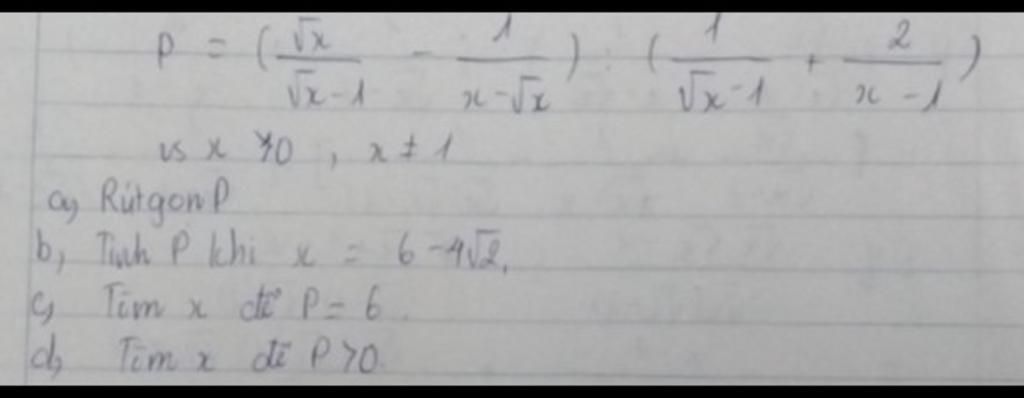 P = (√x/(√x-1) - 1/(x-√x)) : (1/(√x-1) + 2/(x-1))
vs x >0 , x ≠ 1
a, Rút gọn P
b, Tính P khi x = 6-4√2.
c, Tìm x để P = 6.
d, Tìm x để P >0.